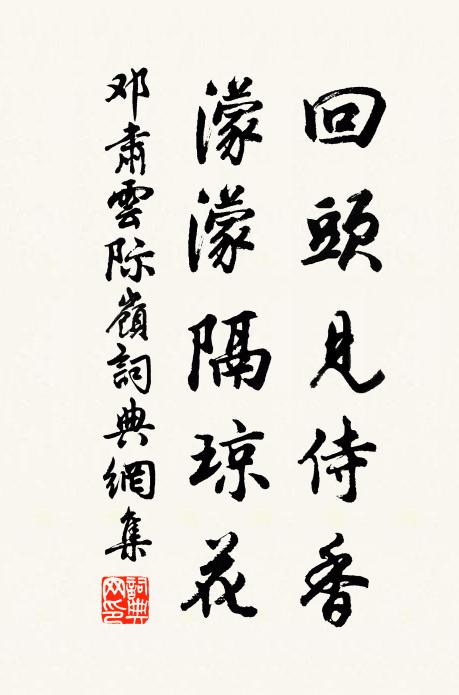 回頭見侍香
濛濛隔琼花
邓肅雲际嶺詞典網集
詞典網印